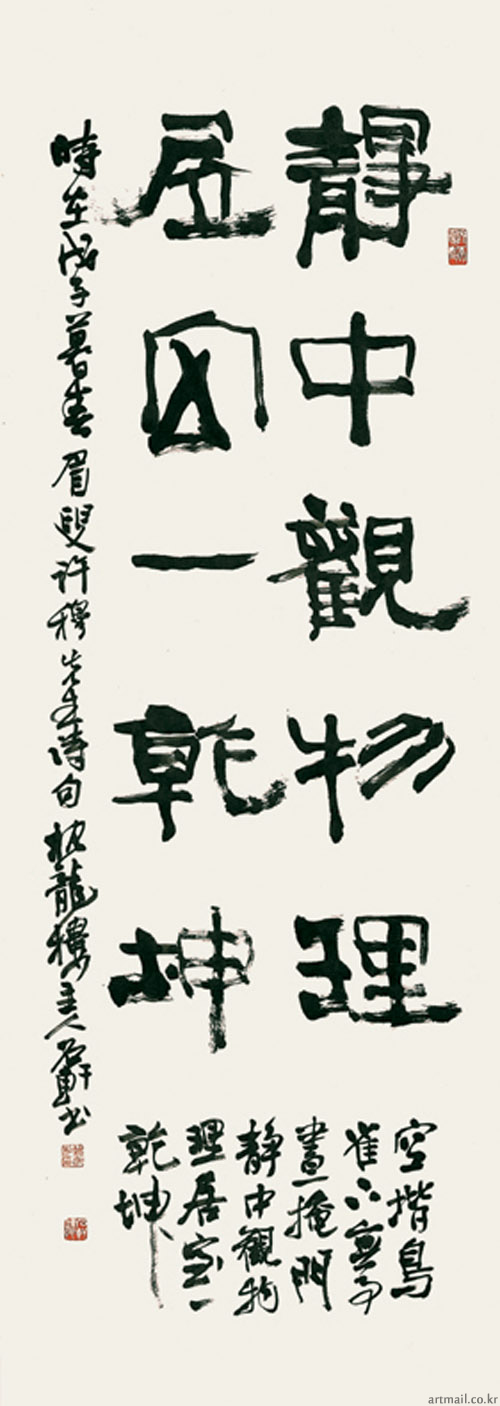 靜中觀物理
居室一乾坤
空堦鳥
雀下無事
晝掩門
静中觀物
理居室一
乾坤
時在戊子暮春眉叟許穆先生詩句龍樓主人軒書
artmail.co.kr